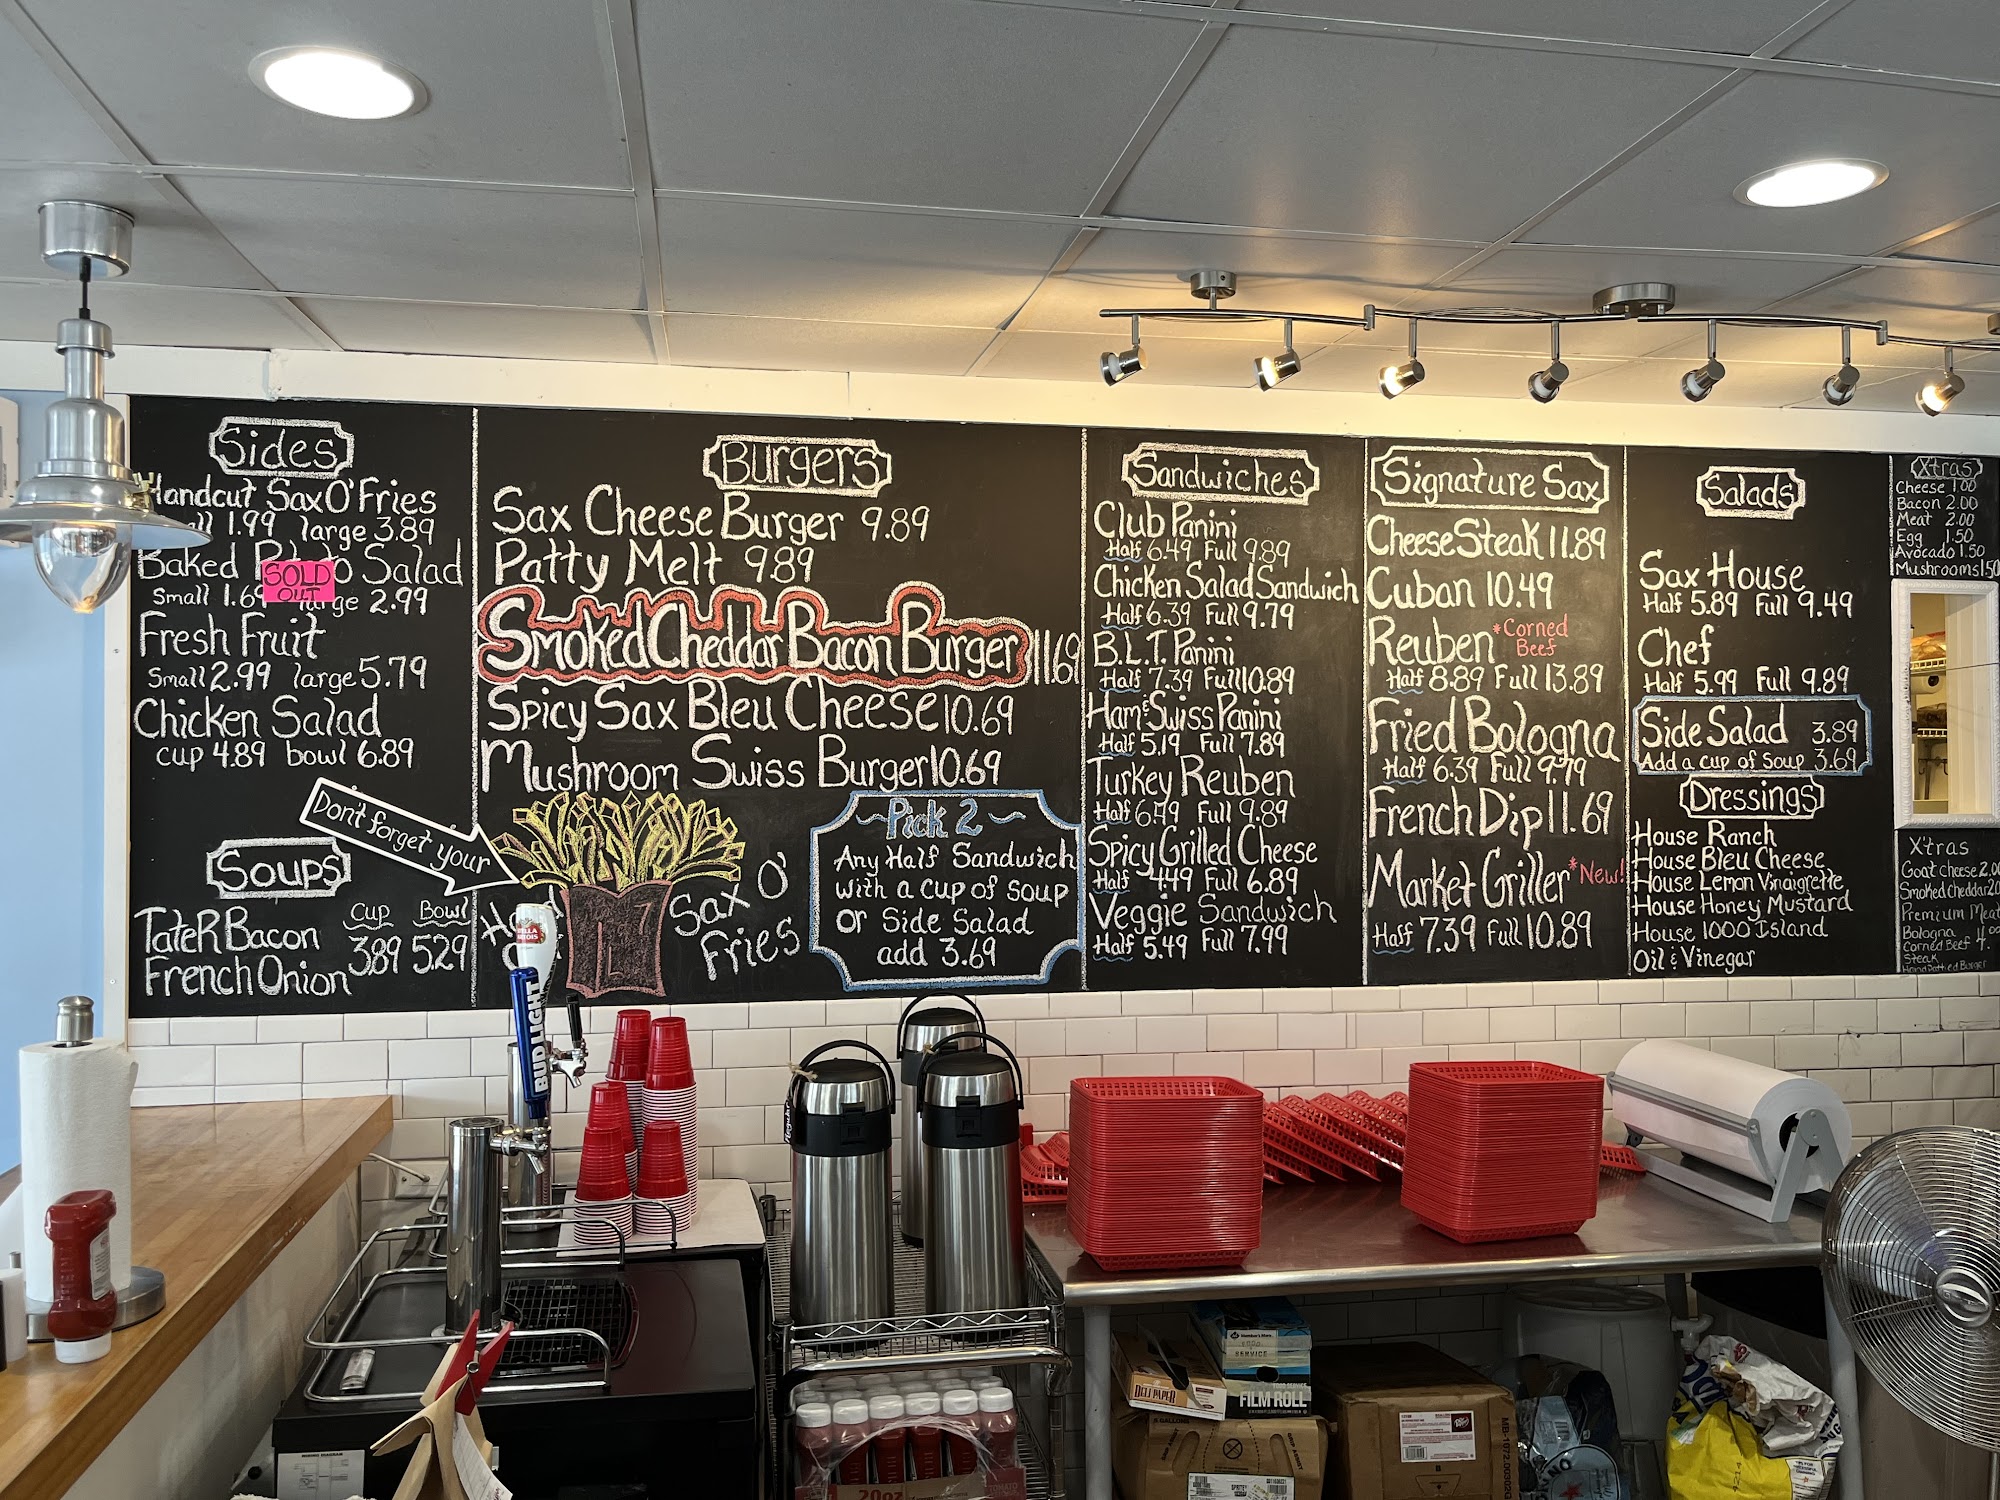 Sides
Handcut SaxO'Fries
1.99 large 3.89
Baked Salad
SOLD
OUT
small 1.69 large 2.99
Fresh Fruit
Small 2.99 large 5.79
Chicken Salad
cup 4.89 bowl 6.89
Don't forget your
Soups
Cup Bowl
TateRBacon
French Onion 3.89 5.29
Burgers
Sax Cheese Burger 9.89
Patty Melt 9.89
Smoked Cheddar Bacon Burger 11.69
Spicy Sax Bleu Cheese 10.69
Mushroom Swiss Burger 10.69
Sax O'
Fries
Pick 2
Any Half Sandwich
with a cup of soup
or Side Salad
add 3.69
Sandwiches
Club Panini
Half 6.49 Full 9.89
Chicken Salad Sandwich
Half 6.39 Full 9.79
B.L.T. Panini
Half 7.39 Full 10.89
Ham & Swiss Panini
Half 5.19 Full 7.89
Turkey Reuben
Half 6.49 Full 9.89
Spicy Grilled Cheese
Half 4.49 Full 6.89
Veggie Sandwich
Half 5.49 Full 7.99
Signature Sax
Cheese Steak 11.89
Cuban 10.49
Reuben *Corned
Beef
Half 8.89 Full 13.89
Fried Bologna
Half 6.39 Full 9.79
French Dip 11.69
Market Griller *New!
Half 7.39 Full 10.89
Salads
Sax House
Half 5.89 Full 9.49
Chef
Half 5.99 Full 9.89
Side Salad 3.89
Add a cup of Soup 3.69
Dressings
House Ranch
House Bleu Cheese
House Lemon Vinaigrette
House Honey Mustard
House 1000 Island
Oil & Vinegar
Xtras
Cheese 1.00
Bacon 2.00
Meat 2.00
Egg 1.50
Avocado 1.50
Mushrooms 1.50
X'tras
Goat cheese 2.00
Smoked cheddar
Premium Meat
Bologna
Corned Beef
Steak
Hand Pattied Burger
BUD LIGHT
DELI PAPER
FOOD
SERVICE
FILM ROLL
20oz